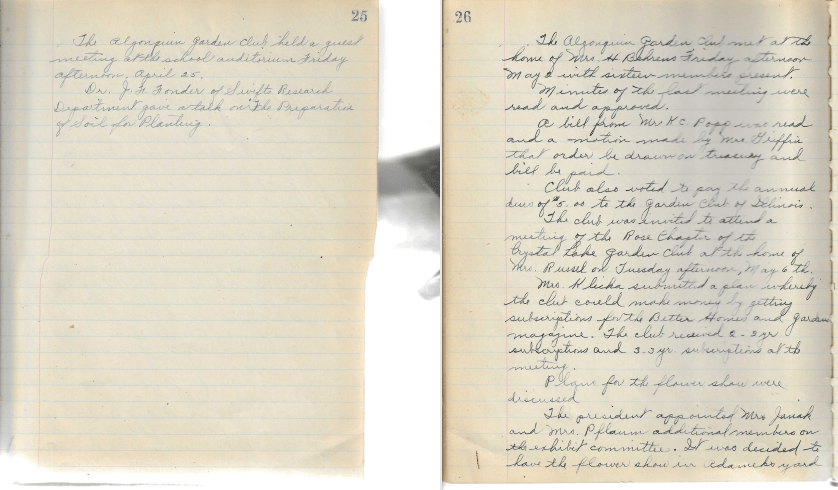 25
The Algonquin Garden Club held a guest
meeting at the school auditorium Friday
afternoon, April 25.
Dr. J. H. Fonder of Swifts Research
Department gave a talk on The Preparation
of Soil for Planting.
26
The Algonquin Garden Club met at the
home of Mrs. H Behrens Friday afternoon
May 2 with sixteen members present.
Minutes of the last meeting were
read and approved.
A bill from Mr K C Popp was read
and a motion made by Mrs Griffin
that order be drawn on treasury and
bill be paid.
Club also voted to pay the annual
dues of $5.00 to the Garden Club of Illinois.
The club was invited to attend a
meeting of the Rose Chapter of the
Crystal Lake Garden Club at the home of
Mrs. Russel on Tuesday afternoon, May 6th.
Mrs. Klicka submitted a plan whereby
the club could make money by getting
subscriptions for the Better Homes and Garden
magazine. The club received 2-2yr
subscriptions and 3-3yr. subscriptions at the
meeting.
Plans for the flower show were
discussed
The president appointed Mrs Janak
and Mrs. Pflaum additional members on
the exhibit committee. It was decided to
have the flower show in Adameks yard